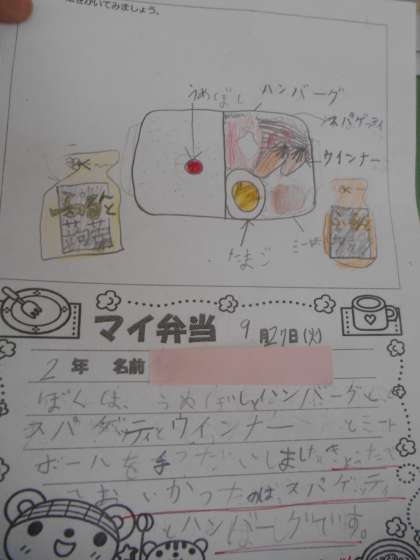 をかいてみましょう。
うめぼし
ハンバーグ
スパゲッティ
ウインナー
たまご
マイ弁当
9月27日(火)
2年 名前
ぼくは、うめぼしとハンバーグと
スパゲッティとウインナー とミート
ボールを手つだいしました。
かったのは、スパゲッティ
とハンばーグです。